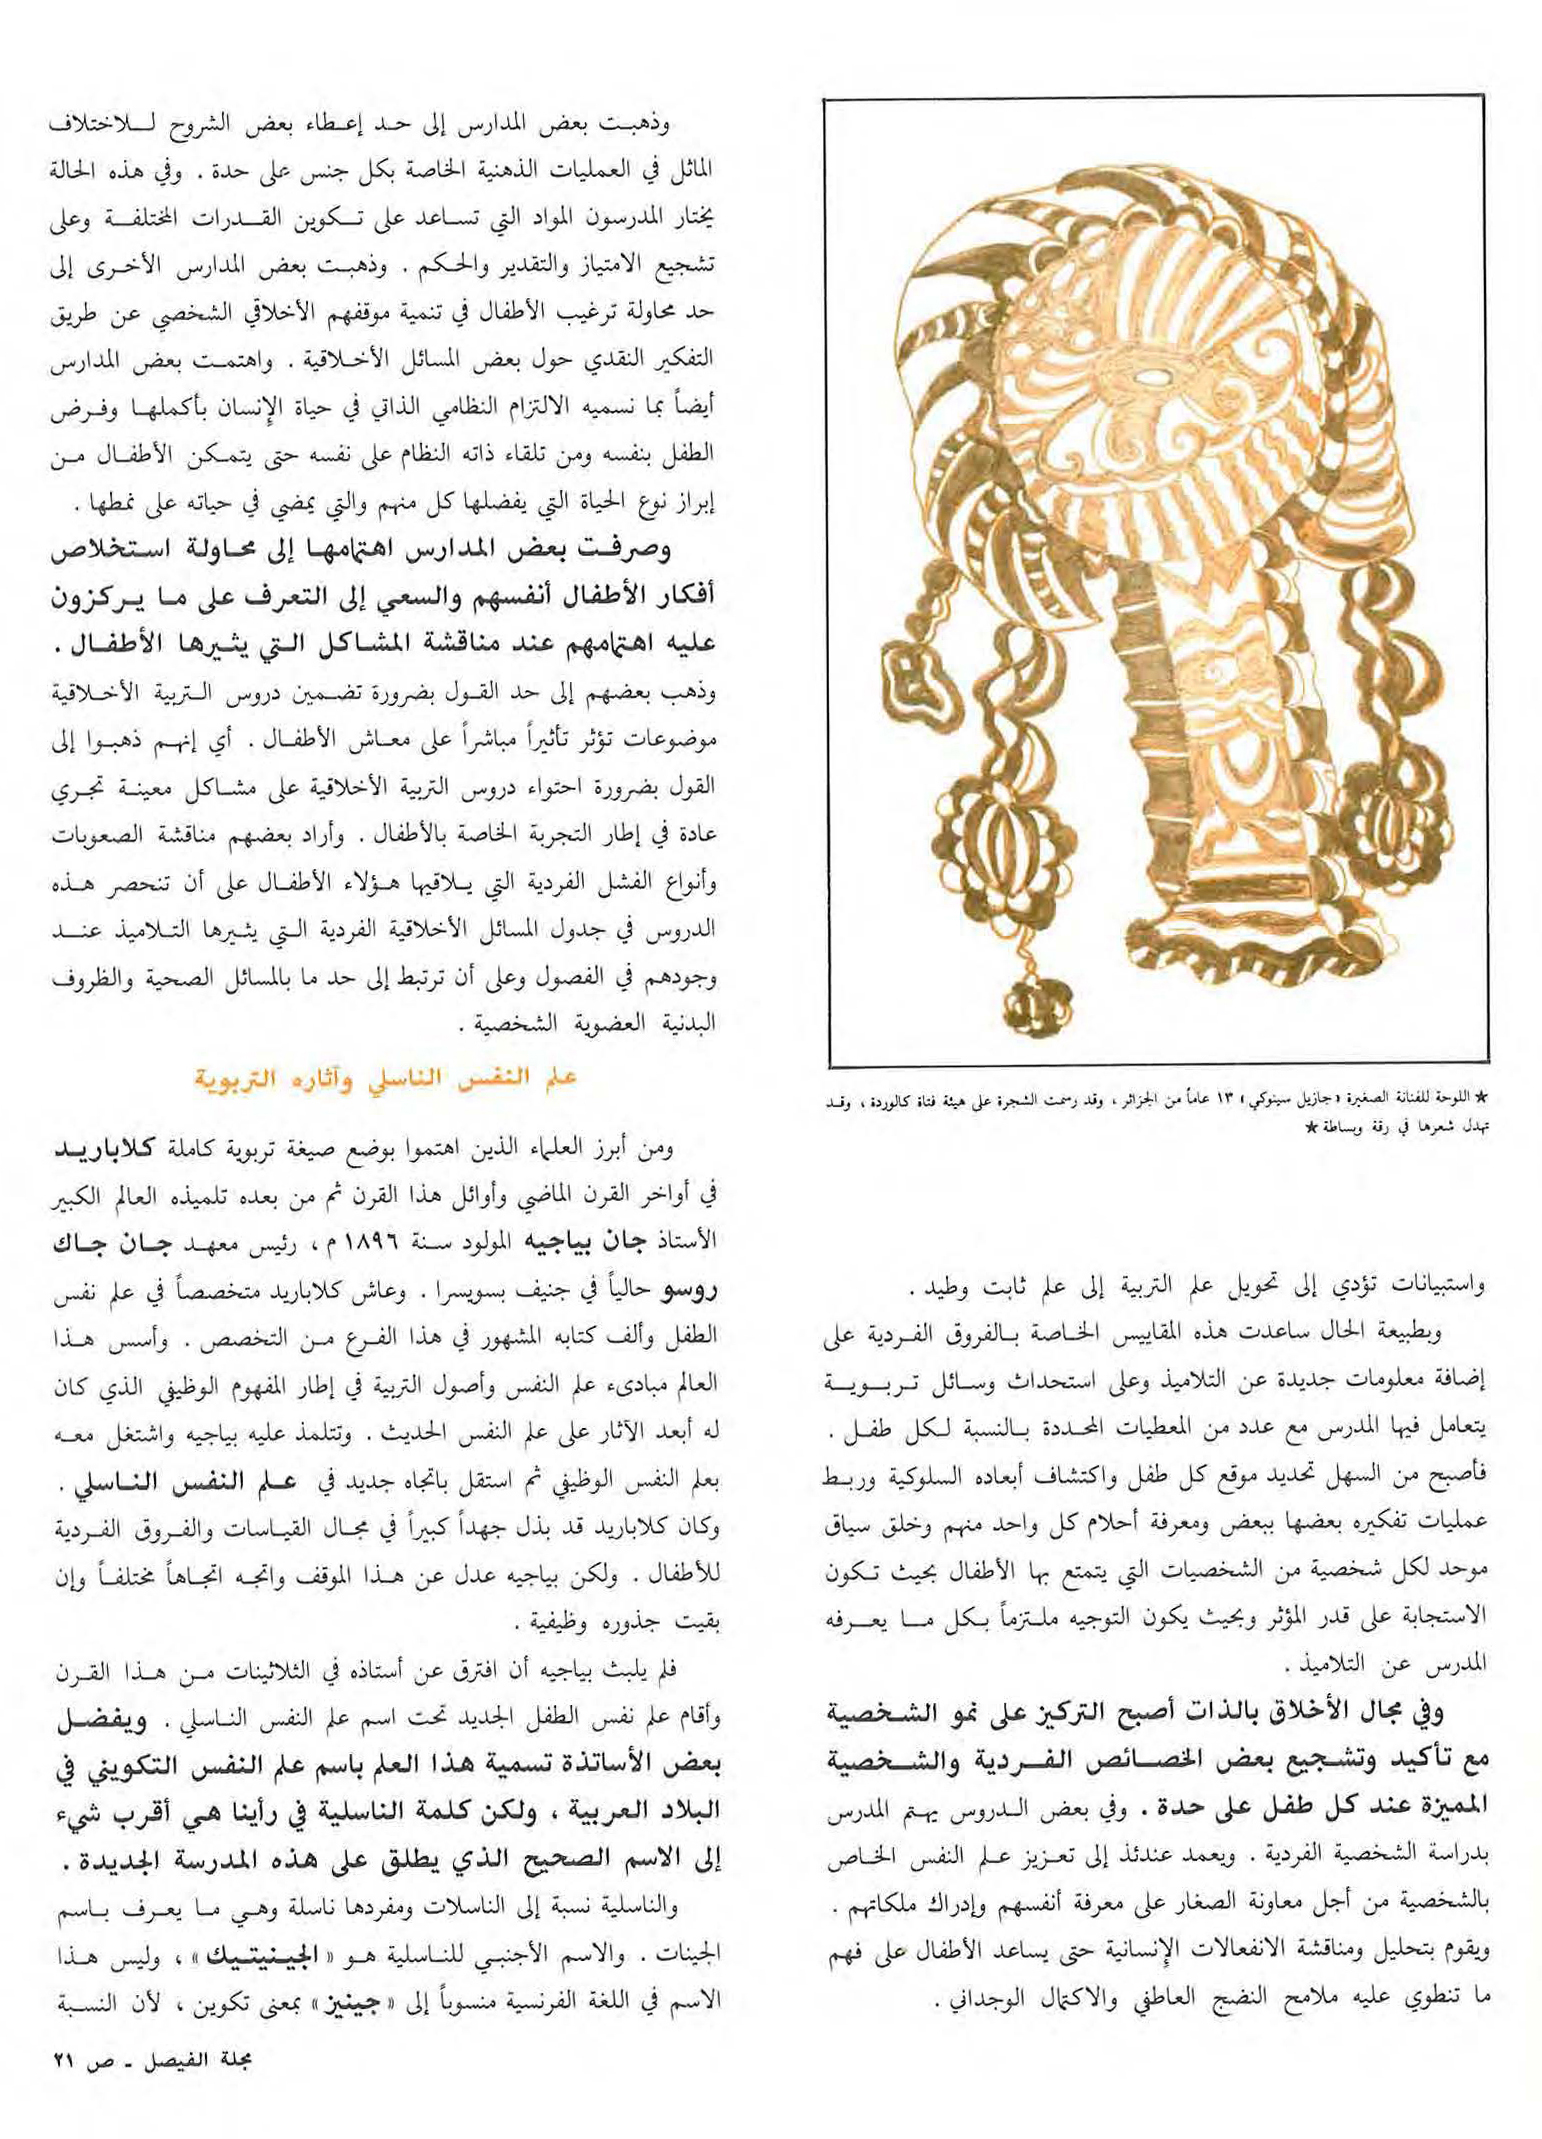 ★ اللوحة للفنانة الصغيرة «جازيل سينوكي» ١٣ عاماً من الجزائر ، وقد رسمت الشجرة على هيئة فتاة كالوردة ، وقد
تهدل شعرها في رقة وبساطة ★
واستبيانات تؤدي إلى تحويل علم التربية إلى علم ثابت وطيد .
وبطبيعة الحال ساعدت هذه المقاييس الخاصة بالفروق الفردية على
إضافة معلومات جديدة عن التلاميذ وعلى استحداث وسائل تربوية
يتعامل فيها المدرس مع عدد من المعطيات المحددة بالنسبة لكل طفل .
فأصبح من السهل تحديد موقع كل طفل واكتشاف أبعاده السلوكية وربط
عمليات تفكيره بعضها ببعض ومعرفة أحلام كل واحد منهم وخلق سياق
موحد لكل شخصية من الشخصيات التي يتمتع بها الأطفال بحيث تكون
الاستجابة على قدر المؤثر وبحيث يكون التوجيه ملتزماً بكل ما يعرفه
المدرس عن التلاميذ .
وفي مجال الأخلاق بالذات أصبح التركيز على نمو الشخصية
مع تأكيد وتشجيع بعض الخصائص الفردية والشخصية
المميزة عند كل طفل على حدة . وفي بعض الدروس يهتم المدرس
بدراسة الشخصية الفردية . ويعمد عندئذ إلى تعزيز علم النفس الخاص
بالشخصية من أجل معاونة الصغار على معرفة أنفسهم وإدراك ملكاتهم .
ويقوم بتحليل ومناقشة الانفعالات الإنسانية حتى يساعد الأطفال على فهم
ما تنطوي عليه ملامح النضج العاطفي والاكتمال الوجداني .
وذهبت بعض المدارس إلى حد إعطاء بعض الشروح للاختلاف
الماثل في العمليات الذهنية الخاصة بكل جنس على حدة . وفي هذه الحالة
يختار المدرسون المواد التي تساعد على تكوين القدرات المختلفة وعلى
تشجيع الامتياز والتقدير والحكم . وذهبت بعض المدارس الأخرى إلى
حد محاولة ترغيب الأطفال في تنمية موقفهم الأخلاقي الشخصي عن طريق
التفكير النقدي حول بعض المسائل الأخلاقية . واهتمت بعض المدارس
أيضاً بما نسميه الالتزام النظامي الذاتي في حياة الإنسان بأكملها وفرض
الطفل بنفسه ومن تلقاء ذاته النظام على نفسه حتى يتمكن الأطفال من
إبراز نوع الحياة التي يفضلها كل منهم والتي يمضي في حياته على نمطها .
وصرفت بعض المدارس اهتمامها إلى محاولة استخلاص
أفكار الأطفال أنفسهم والسعي إلى التعرف على ما يركزون
عليه اهتمامهم عند مناقشة المشاكل التي يثيرها الأطفال .
وذهب بعضهم إلى حد القول بضرورة تضمين دروس التربية الأخلاقية
موضوعات تؤثر تأثيراً مباشراً على معاش الأطفال . أي إنهم ذهبوا إلى
القول بضرورة احتواء دروس التربية الأخلاقية على مشاكل معينة تجري
عادة في إطار التجربة الخاصة بالأطفال . وأراد بعضهم مناقشة الصعوبات
وأنواع الفشل الفردية التي يلاقيها هؤلاء الأطفال على أن تنحصر هذه
الدروس في جدول المسائل الأخلاقية الفردية التي يثيرها التلاميذ عند
وجودهم في الفصول وعلى أن ترتبط إلى حد ما بالمسائل الصحية والظروف
البدنية العضوية الشخصية .
علم النفس الناسلي وآثاره التربوية
ومن أبرز العلماء الذين اهتموا بوضع صيغة تربوية كاملة كلاباريد
في أواخر القرن الماضي وأوائل هذا القرن ثم من بعده تلميذه العالم الكبير
الأستاذ جان بياجيه المولود سنة ١٨٩٦ م ، رئيس معهد جان جاك
روسو حالياً في جنيف بسويسرا . وعاش كلاباريد متخصصاً في علم نفس
الطفل وألف كتابه المشهور في هذا الفرع من التخصص . وأسس هذا
العالم مبادىء علم النفس وأصول التربية في إطار المفهوم الوظيفي الذي كان
له أبعد الآثار على علم النفس الحديث . وتتلمذ عليه بياجيه واشتغل معه
بعلم النفس الوظيفي ثم استقل باتجاه جديد في علم النفس الناسلي .
وكان كلاباريد قد بذل جهداً كبيراً في مجال القياسات والفروق الفردية
للأطفال . ولكن بياجيه عدل عن هذا الموقف واتجه اتجاهاً مختلفاً وإن
بقيت جذوره وظيفية .
فلم يلبث بياجيه أن افترق عن أستاذه في الثلاثينات من هذا القرن
وأقام علم نفس الطفل الجديد تحت اسم علم النفس الناسلي . ويفضل
بعض الأساتذة تسمية هذا العلم باسم علم النفس التكويني في
البلاد العربية ، ولكن كلمة الناسلية في رأينا هي أقرب شيء
إلى الاسم الصحيح الذي يطلق على هذه المدرسة الجديدة .
والناسلية نسبة إلى الناسلات ومفردها ناسلة وهي ما يعرف باسم
الجينات . والاسم الأجنبي للناسلية هو «الجينيتيك» ، وليس هذا
الاسم في اللغة الفرنسية منسوباً إلى «جينيز» بمعنى تكوين ، لأن النسبة
مجلة الفيصل - ص ٢١